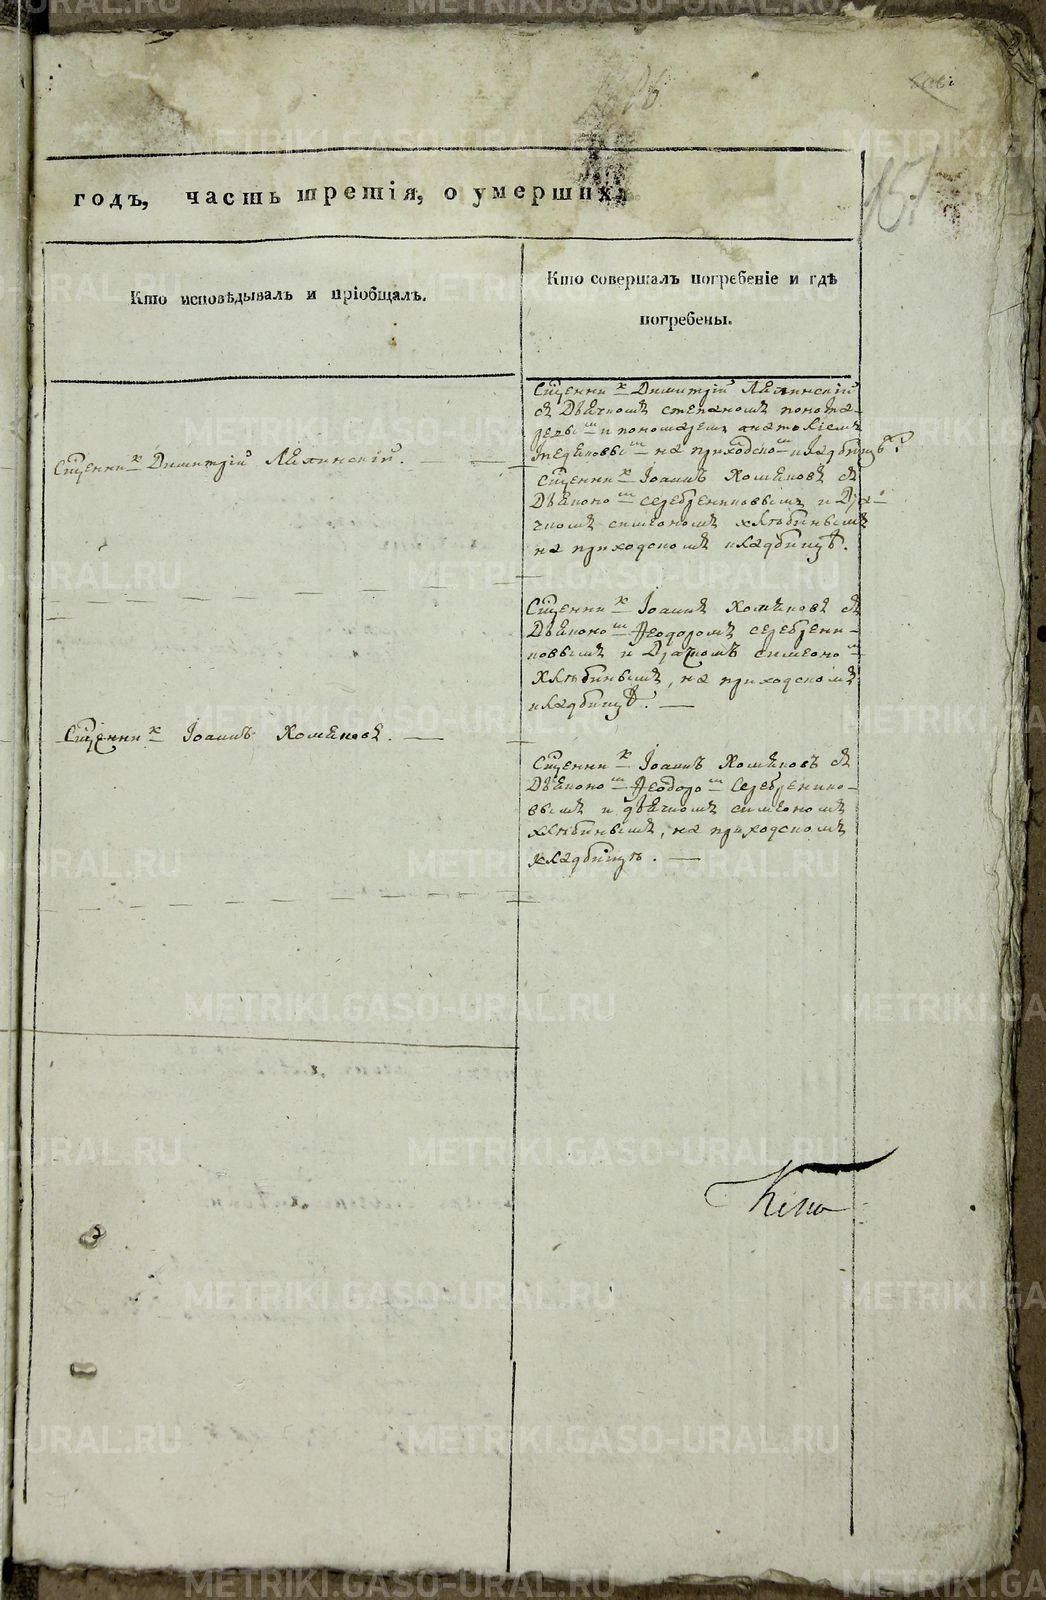 годъ, часть третія, о умершихъ
Кто исповѣдывалъ и пріобщалъ.
Кто совершалъ погребеніе и гдѣ
погребены.
Сщенникъ Димитрій
Сщенникъ Димитрій
съ Дьячкомъ степаномъ
и пономаремъ
на приходскомъ кладбищѣ.
Сщенникъ Іоаннъ Хомяковъ съ
Дьякономъ серебрениковымъ и Дья-
чкомъ симеономъ хлѣбинымъ
на приходскомъ кладбищѣ.
Сщенникъ Іоаннъ Хомяковъ съ
Дьякономъ Ѳеодоромъ серебрени-
ковымъ и Дьячкомъ симеономъ
Хлѣбинымъ, на приходскомъ
кладбищѣ.
Сщенникъ Іоаннъ Хомяковъ.
Сщенникъ Іоаннъ Хомяковъ съ
Дьякономъ Ѳеодоромъ Серебренико-
вымъ и дьячкомъ симеономъ
хлѣбинымъ, на приходскомъ
кладбищѣ.
METRIKI.GASO-URAL.RU